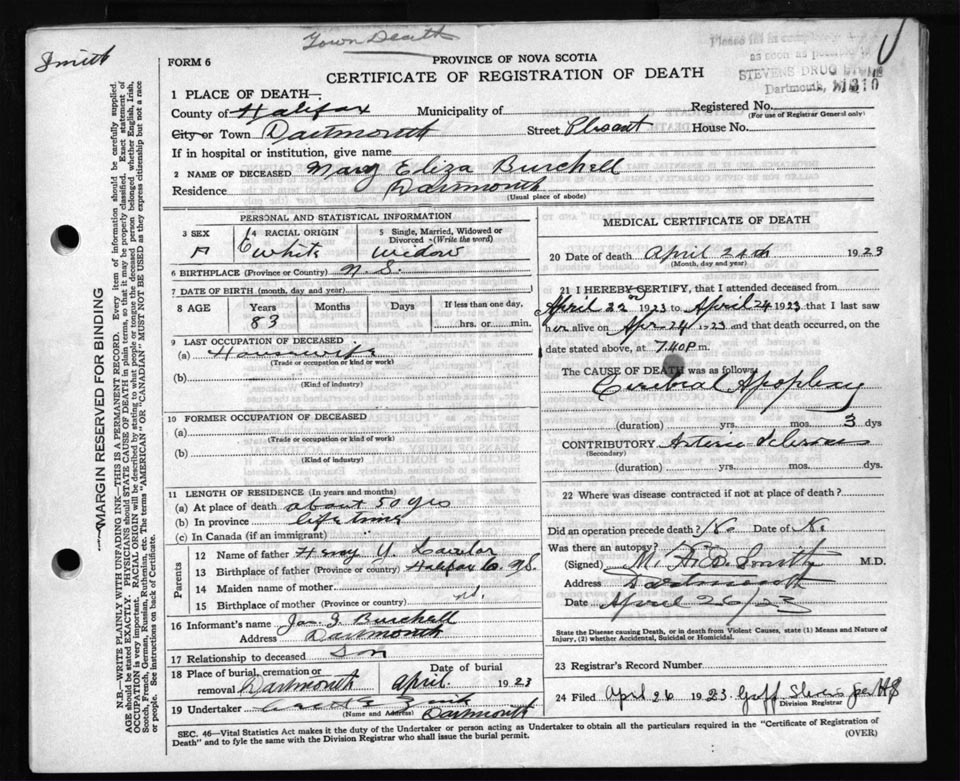 Smith
Town Death
Please fill in completely
as soon as possible
STEVENS DRUG STORE
Dartmouth,
FORM 6
PROVINCE OF NOVA SCOTIA
CERTIFICATE OF REGISTRATION OF DEATH
1 PLACE OF DEATH—
County of Halifax Municipality of
Registered No.
(For use of Registrar General only)
City or Town Dartmouth Street Plesant House No.
If in hospital or institution, give name
2 NAME OF DECEASED Mary Eliza Burchell
Residence Dartmouth
(Usual place of abode)
PERSONAL AND STATISTICAL INFORMATION
3 SEX 4 RACIAL ORIGIN 5 Single, Married, Widowed or Divorced (Write the word)
F White Widow
6 BIRTHPLACE (Province or Country) N.S.
7 DATE OF BIRTH (month, day, and year)
8 AGE Years Months Days If less than one day,
83 hrs. or min.
9 LAST OCCUPATION OF DECEASED
(a) Housewife
(Trade or occupation or kind or work)
(b)
(Kind of industry)
10 FORMER OCCUPATION OF DECEASED
(a)
(Trade or occupation or kind of work)
(b)
(Kind of industry)
11 LENGTH OF RESIDENCE (In years and months)
(a) At place of death about 50 yrs
(b) In province life time
(c) In Canada (if an immigrant)
Parents
12 Name of father Henry Y.
13 Birthplace of father (Province or country) Halifax Co. N.S.
14 Maiden name of mother
15 Birthplace of mother (Province or country)
16 Informant's name Jas. J. Burchell
Address Dartmouth
17 Relationship to deceased Son
18 Place of burial, cremation or removal Dartmouth Date of burial April 1923
19 Undertaker
(Name and Address) Dartmouth
MEDICAL CERTIFICATE OF DEATH
20 Date of death April 24th 1923
(Month, day and year)
21 I HEREBY CERTIFY, that I attended deceased from
April 22 1923 to April 24 1923 that I last saw
her alive on Apr 24 1923 and that death occurred, on the
date stated above, at 7.40 P.m.
The CAUSE OF DEATH was as follows:
Cerebral Apoplexy
(duration) yrs. mos. 3 dys
CONTRIBUTORY Arterio Sclerosis
(Secondary)
(duration) yrs. mos. dys.
22 Where was disease contracted if not at place of death?
Did an operation precede death? No Date of No
Was there an autopsy?
(Signed) M. A. B. Smith M.D.
Address Dartmouth
Date April 26/23
State the Disease causing Death, or in death from Violent Causes, state (1) Means and Nature of
Injury, (2) whether Accidental, Suicidal or Homicidal.
23 Registrar's Record Number
24 Filed April 26 1923
Division Registrar
SEC. 46—Vital Statistics Act makes it the duty of the Undertaker or person acting as Undertaker to obtain all the particulars required in the "Certificate of Registration of
Death" and to fyle the same with the Division Registrar who shall issue the burial permit.
(OVER)
MARGIN RESERVED FOR BINDING
N.B.—WRITE PLAINLY WITH UNFADING INK—THIS IS A PERMANENT RECORD. Every item of information should be carefully supplied.
AGE should be stated EXACTLY. PHYSICIANS should STATE CAUSE OF DEATH in plain terms, so that it may be properly classified. Exact statement of
OCCUPATION is very important. RACIAL ORIGIN will be described by stating to what people or tongue the deceased person belonged whether English, Irish,
Scotch, French, German, Russian, Ruthenian, etc. The terms "AMERICAN" or "CANADIAN" MUST NOT BE USED as they express citizenship but not a race
or people. See instructions on back of Certificate.